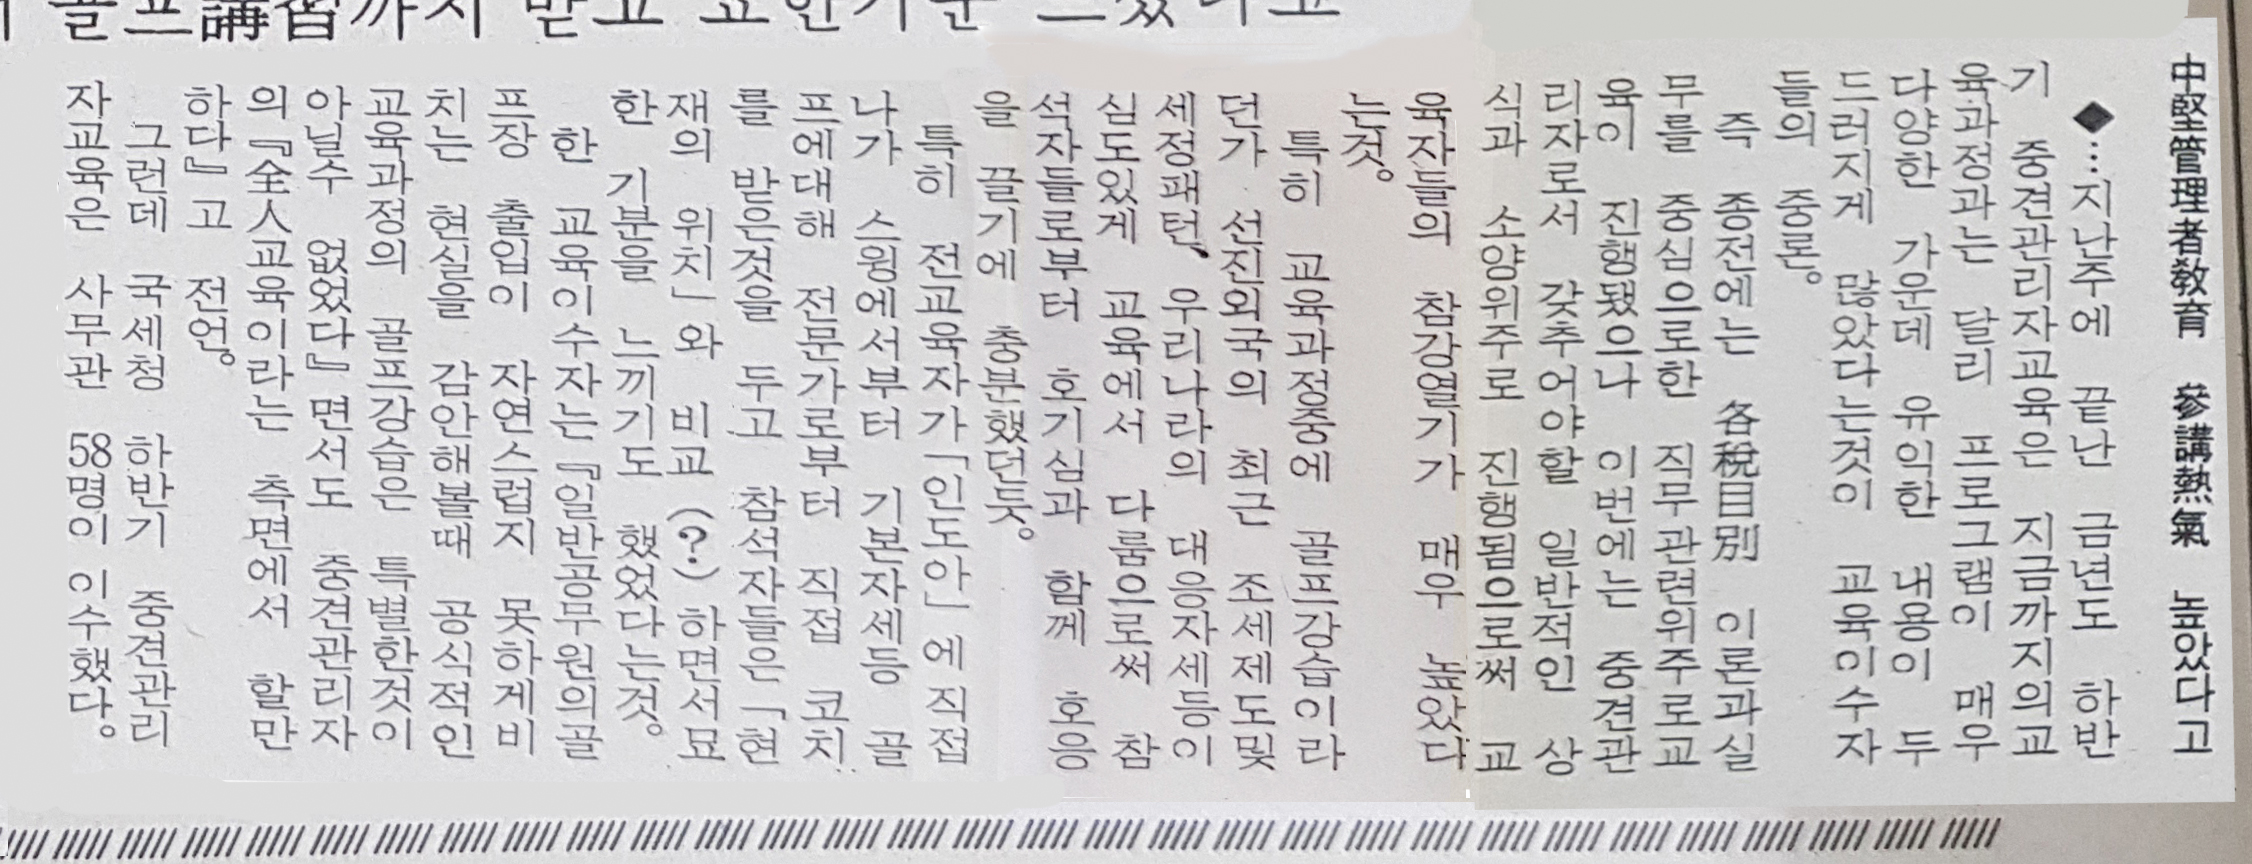 골프講習까지 받고 묘한기분 느꼈다고
中堅管理者教育 參講熱氣 높았다고
◆…지난주에 끝난 금년도 하반
기 중견관리자교육은 지금까지의교
육과정과는 달리 프로그램이 매우
다양한 가운데 유익한 내용이 두
드러지게 많았다는것이 교육이수자
들의 중론。
즉 종전에는 各稅目別 이론과실
무를 중심으로한 직무관련위주로교
육이 진행됐으나 이번에는 중견관
리자로서 갖추어야할 일반적인 상
식과 소양위주로 진행됨으로써 교
육자들의 참강열기가 매우 높았다
는것。
특히 교육과정중에 골프강습이라
던가 선진외국의 최근 조세제도및
세정패턴、우리나라의 대응자세등이
심도있게 교육에서 다룸으로써 참
석자들로부터 호기심과 함께 호응
을 끌기에 충분했던듯。
특히 전교육자가「인도아」에직접
나가 스윙에서부터 기본자세등 골
프에대해 전문가로부터 직접 코치
를 받은것을 두고 참석자들은「현
재의 위치」와 비교(?)하면서묘
한 기분을 느끼기도 했었다는것。
한 교육이수자는『일반공무원의골
프장 출입이 자연스럽지 못하게비
치는 현실을 감안해볼때 공식적인
교육과정의 골프강습은 특별한것이
아닐수 없었다』면서도 중견관리자
의『全人교육이라는 측면에서 할만
하다』고 전언。
그런데 국세청 하반기 중견관리
자교육은 사무관 58명이 이수했다。